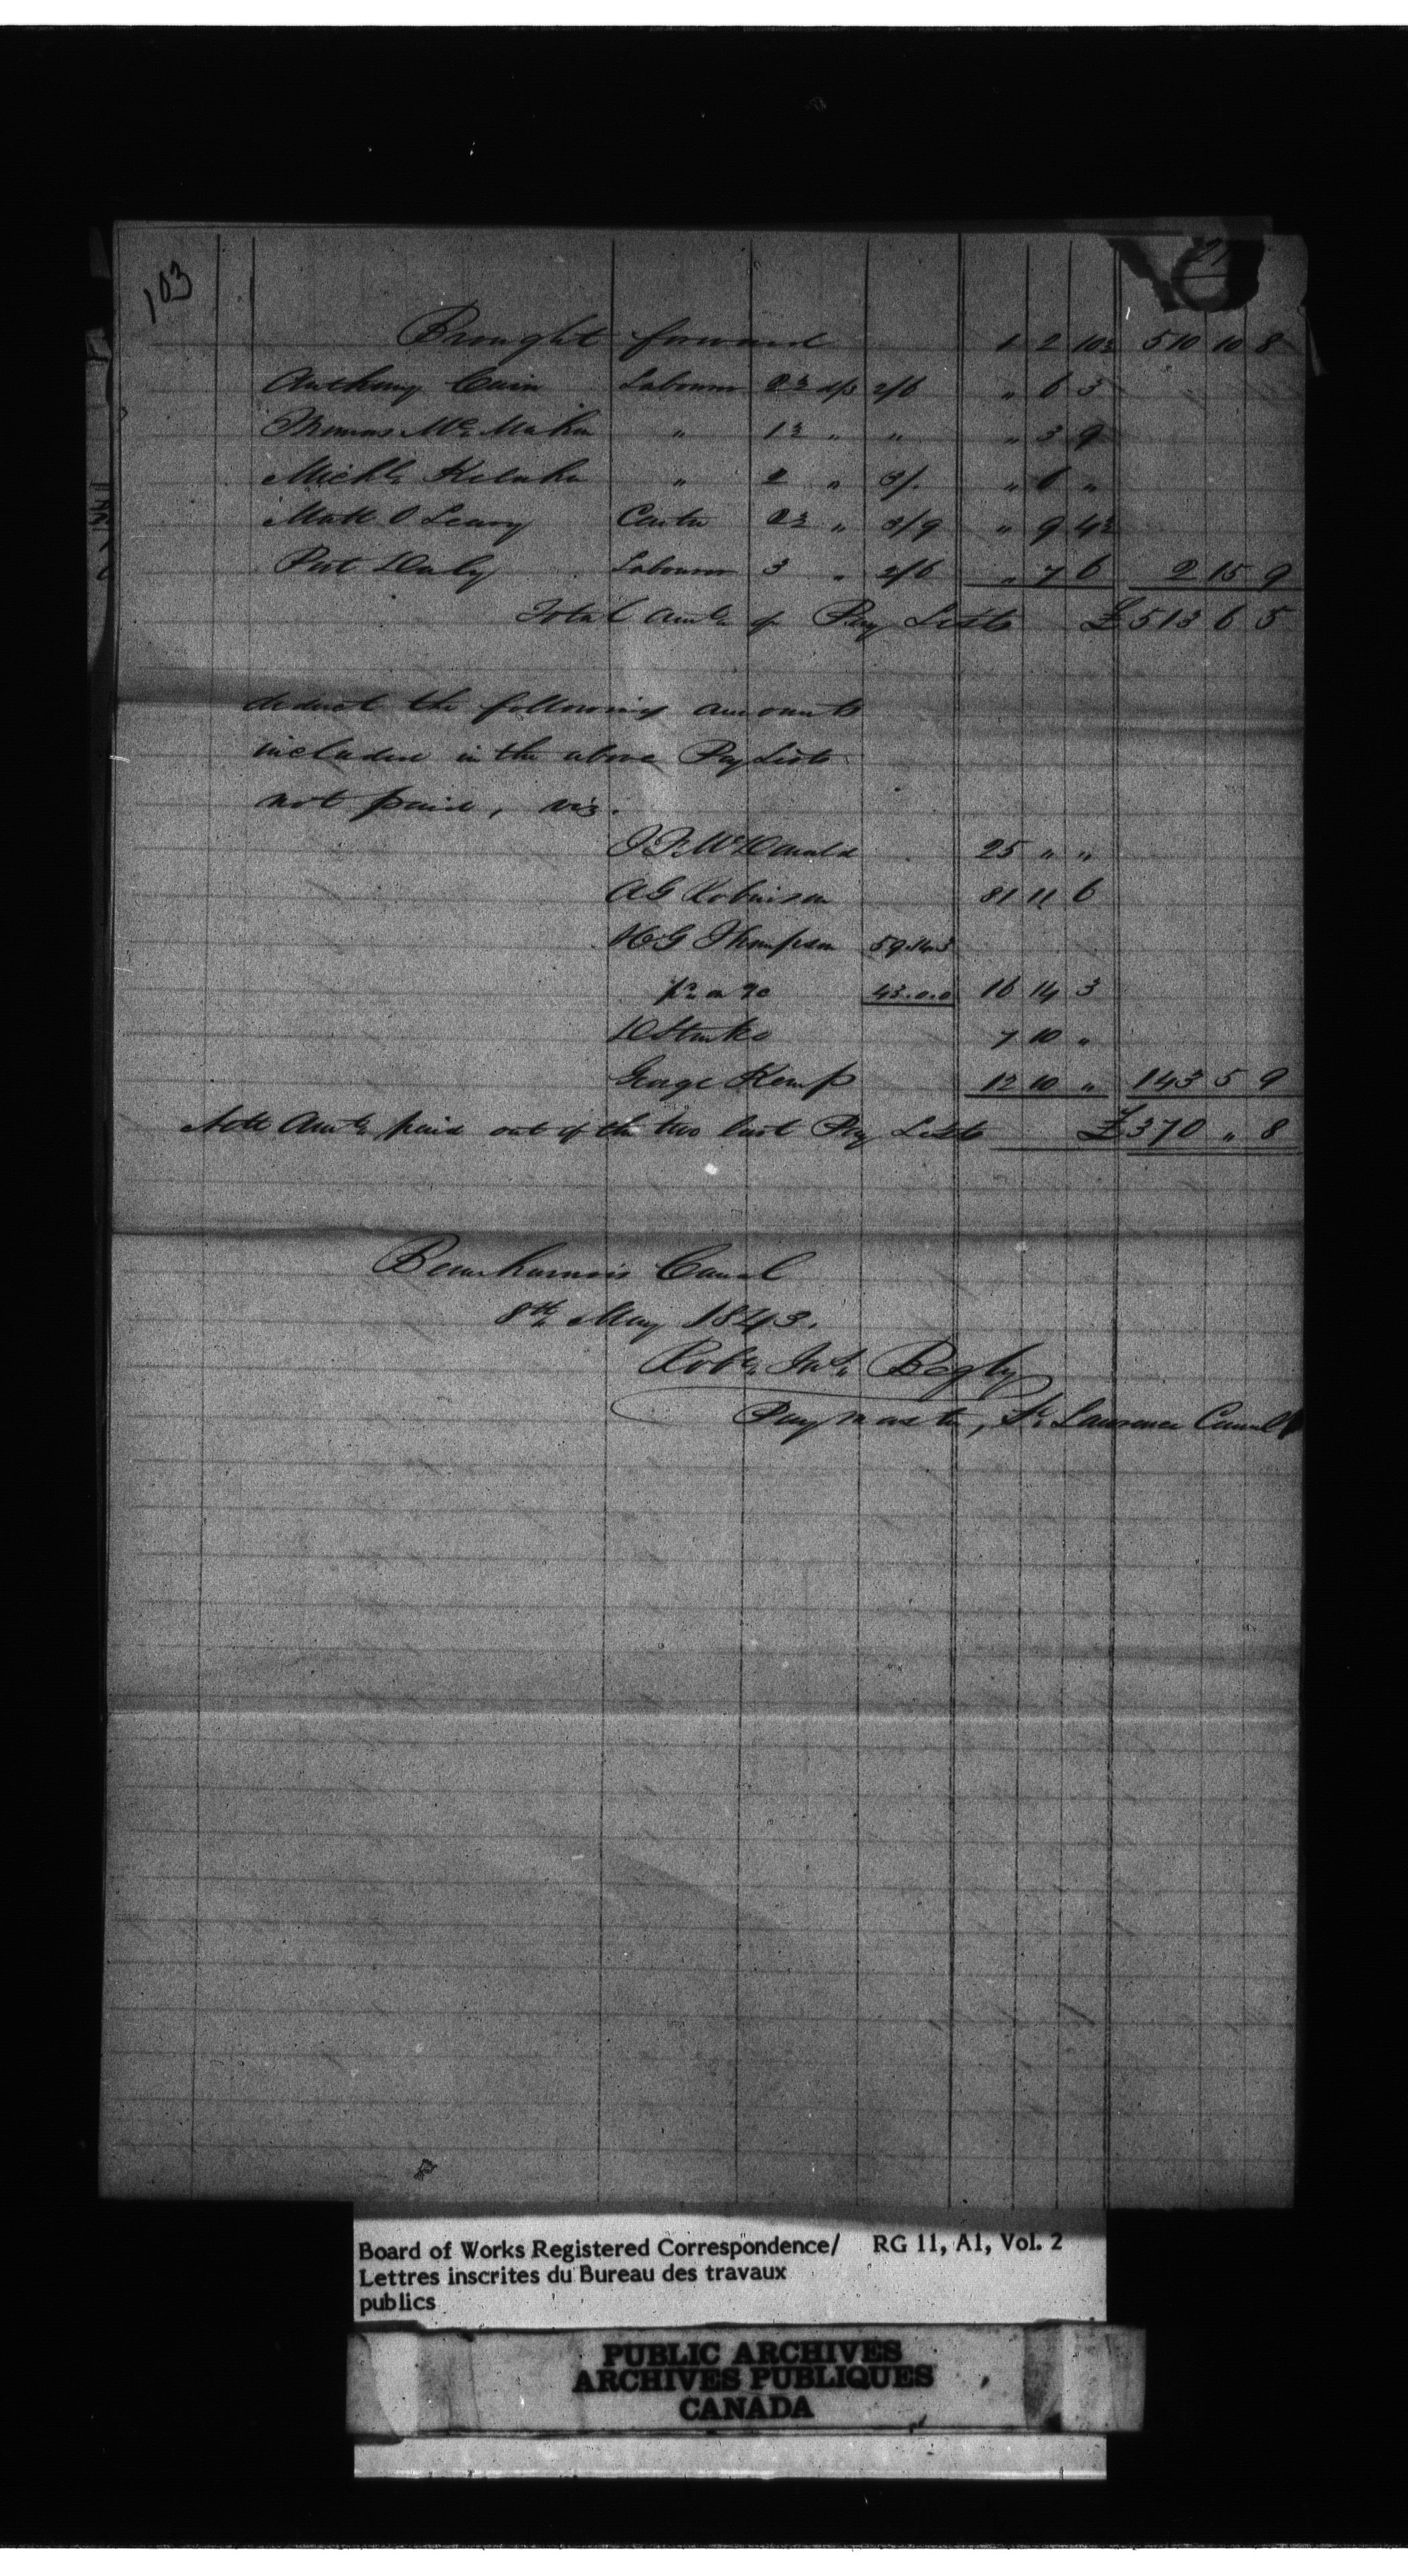 103
21
Brought forward 1 2 10½ 510 10 8
Anthony Cain Labourer 2½ d/s 2/6 " 6 3
Thomas McMahon " 1½ " " " 3 9
Michl. Kelaher " 2 " 3/. " 6 "
Matt O Leary Carter 2½ " 3/9 " 9 4½
Pat Daly Labourer 3 " 2/6 " 7 6 2 15 9
Total Amt. of Pay Lists £513 6 5
deduct the following amounts
included in the above Pay Lists
not paid, viz.
J.F. McDonald 25 " "
A G Robinson 81 11 6
H G Thompson 59.14.3
pd. on a/c 43.0.0 16 14 3
D Starke 7 10 "
George Kemp 12 10 " 143 5 9
Nett Amt. paid out of the two last Pay Lists £370 " 8
Beauharnois Canal
8th May 1843.
Robt. Jno. Begly
Paymaster, St. Lawrence Canal
Board of Works Registered Correspondence/ RG 11, A1, Vol. 2
Lettres inscrites du Bureau des travaux
publics
PUBLIC ARCHIVES
ARCHIVES PUBLIQUES
CANADA